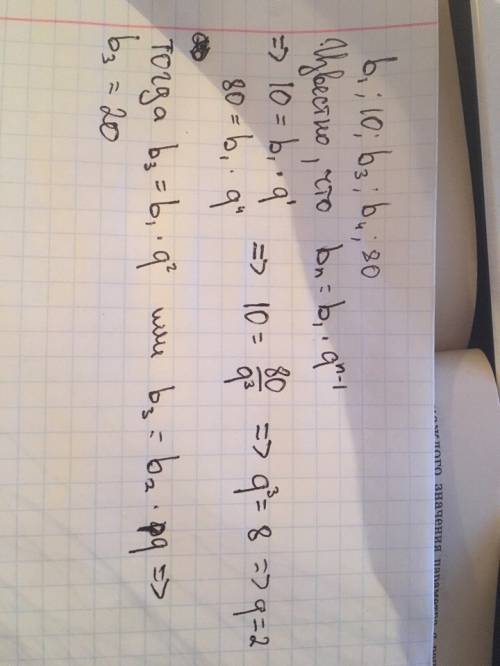 b₁; 10; b₃; b₄; 80
Известно, что bₙ = b₁ · qⁿ⁻¹
=> 10 = b₁ · q¹
80 = b₁ · q⁴ => 10 = 80/q³ => q³ = 8 => q = 2
Тогда b₃ = b₁ · q² или b₃ = b₂ · q =>
b₃ = 20
значения параметра